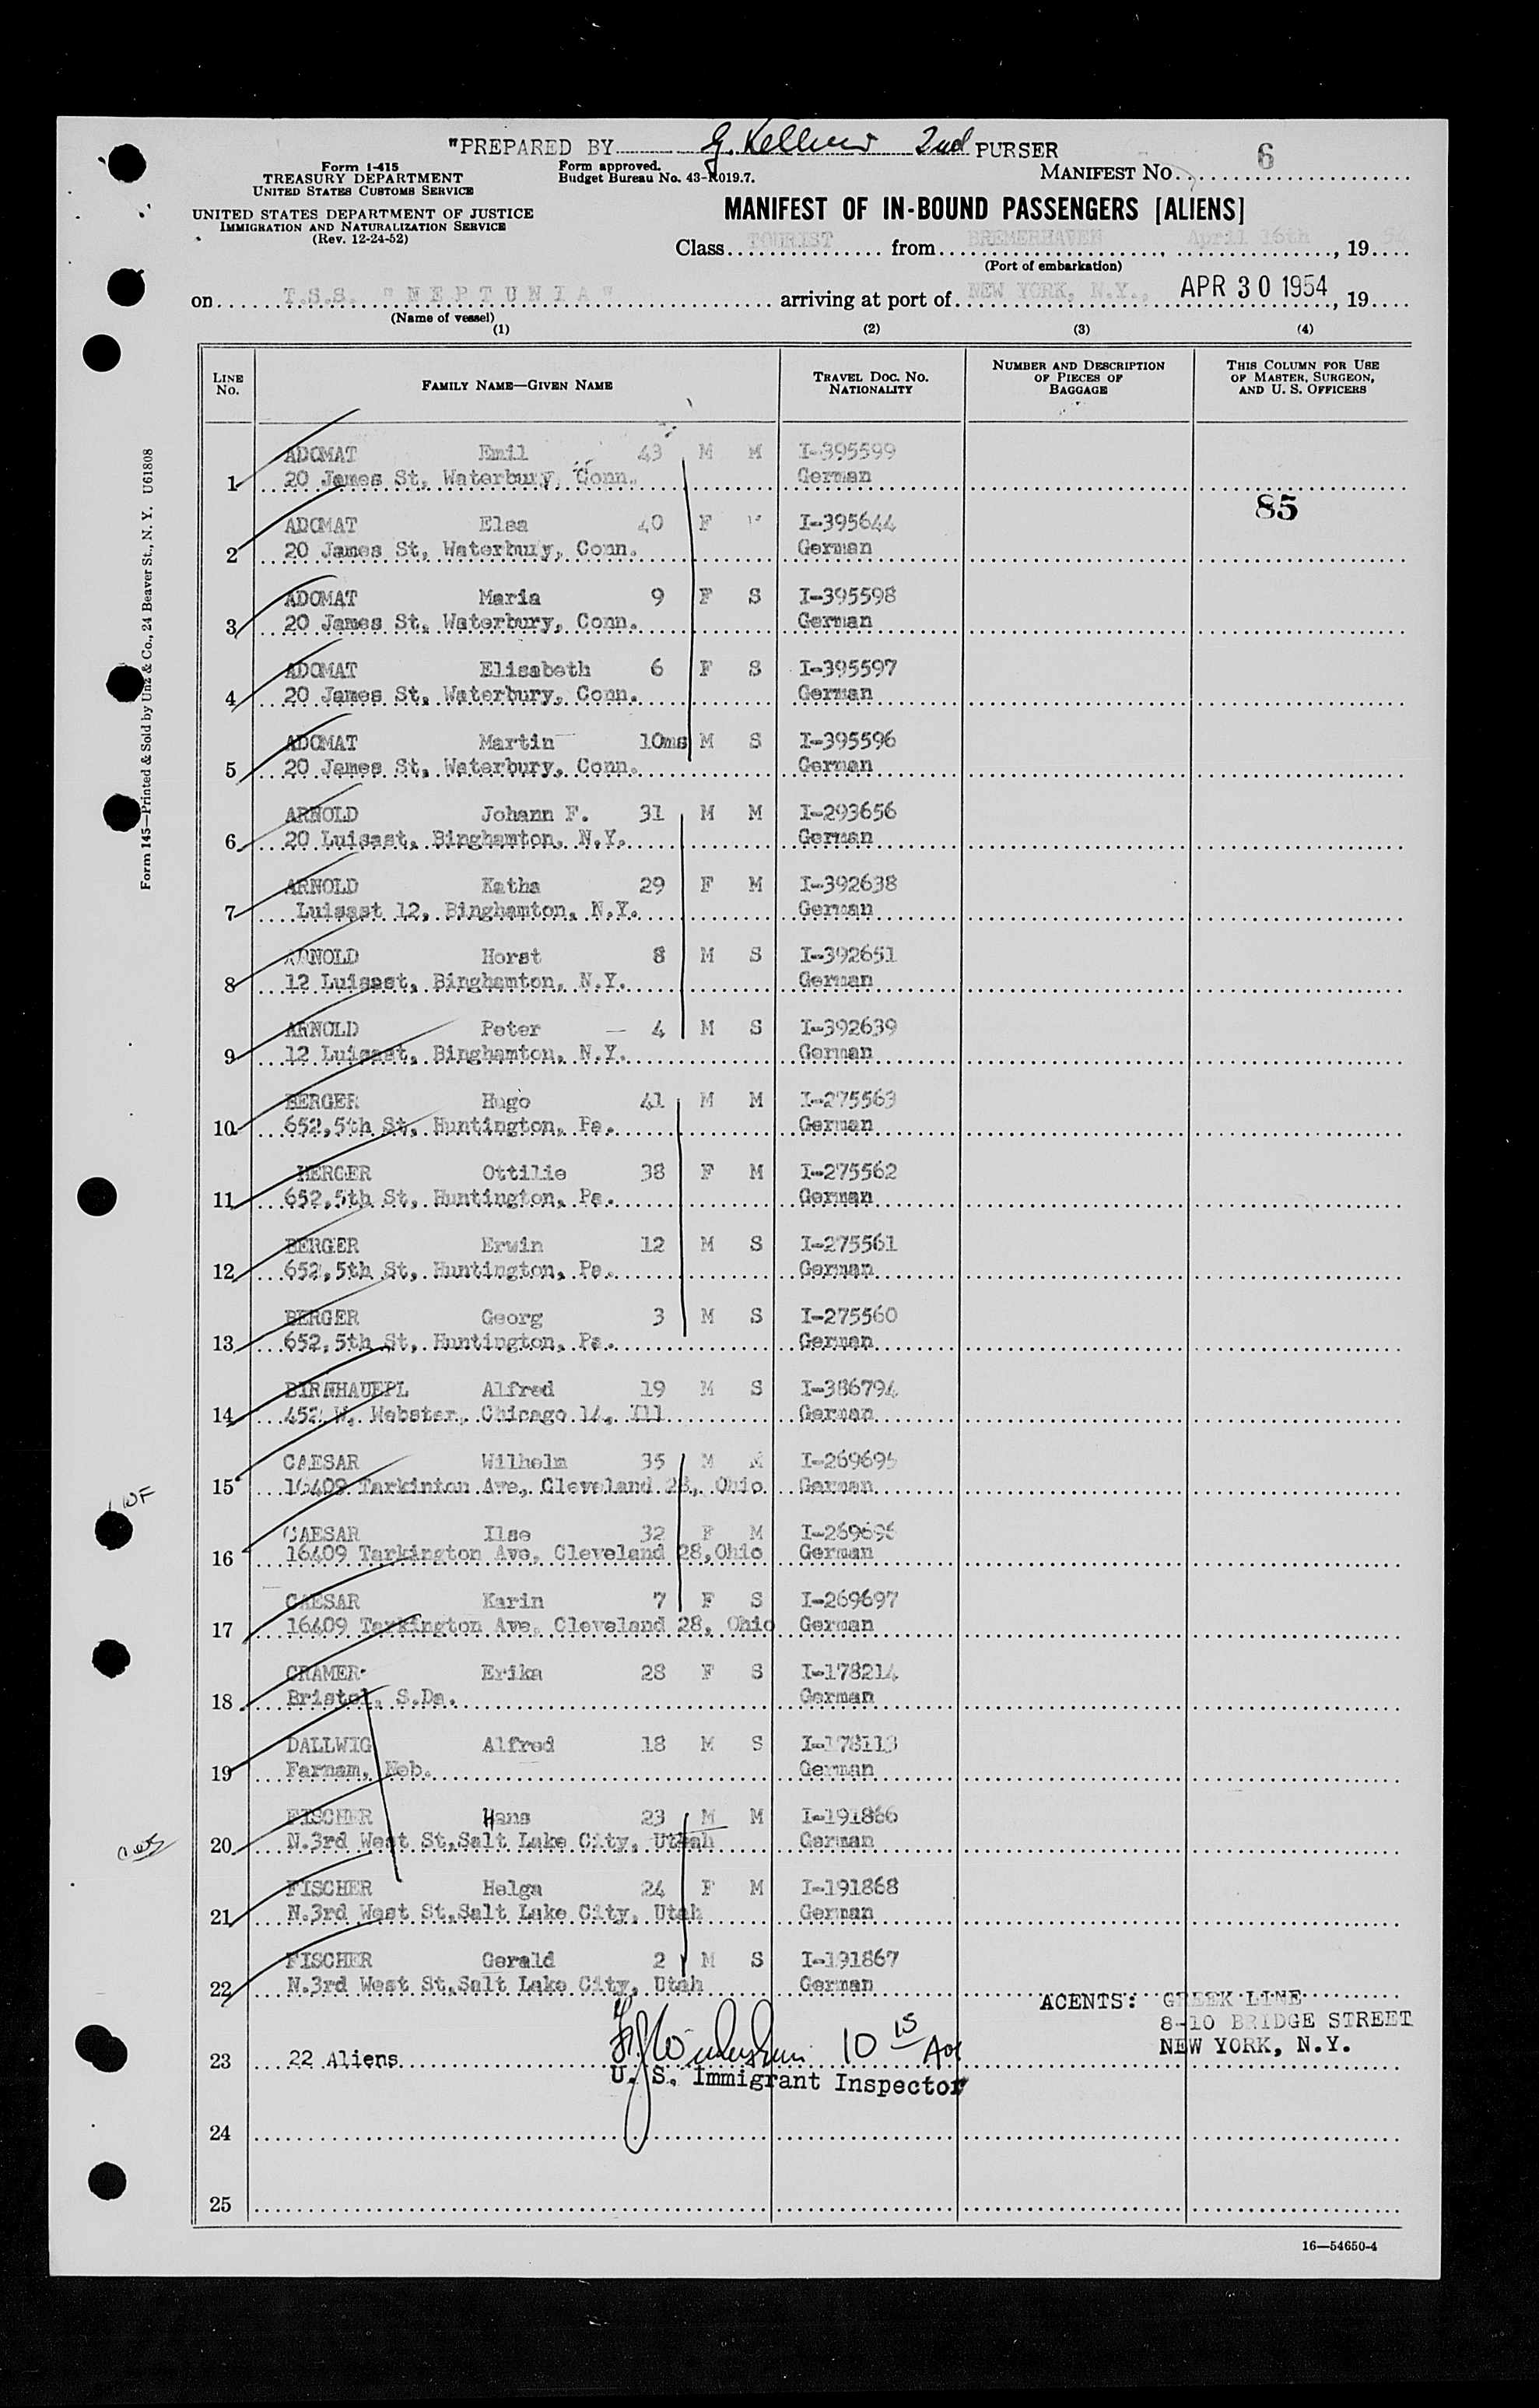 "PREPARED BY G. Kellner 2nd PURSER
Form I-415
TREASURY DEPARTMENT
UNITED STATES CUSTOMS SERVICE
Form approved.
Budget Bureau No. 43-R019.7.
MANIFEST No. 6
UNITED STATES DEPARTMENT OF JUSTICE
IMMIGRATION AND NATURALIZATION SERVICE
(Rev. 12-24-52)
MANIFEST OF IN-BOUND PASSENGERS [ALIENS]
Class TOURIST from BREMERHAVEN, April 16th, 1954
(Port of embarkation)
on T.S.S. "NEPTUNIA" arriving at port of NEW YORK, N.Y., APR 30 1954, 19
(Name of vessel)
(1) (2) (3) (4)
LINE NO.
FAMILY NAME—GIVEN NAME
TRAVEL DOC. NO. NATIONALITY
NUMBER AND DESCRIPTION OF PIECES OF BAGGAGE
THIS COLUMN FOR USE OF MASTER, SURGEON, AND U. S. OFFICERS
ADOMAT Emil 43 M M I-395599
1 20 James St, Waterbury, Conn. German
85
ADOMAT Elsa 40 F I-395644
2 20 James St, Waterbury, Conn. German
ADOMAT Maria 9 F S I-395598
3 20 James St, Waterbury, Conn. German
ADOMAT Elisabeth 6 F S I-395597
4 20 James St, Waterbury, Conn. German
ADOMAT Martin 10ms M S I-395596
5 20 James St, Waterbury, Conn. German
ARNOLD Johann F. 31 M M I-293656
6 20 Luisast, Binghamton, N.Y. German
ARNOLD Katha 29 F M I-392638
7 Luisast 12, Binghamton, N.Y. German
ARNOLD Horst 8 M S I-392651
8 12 Luisast, Binghamton, N.Y. German
ARNOLD Peter — 4 M S I-392639
9 12 Luisast, Binghamton, N.Y. German
BERGER Hugo 41 M M I-275563
10 652,5th St, Huntington, Pa. German
BERGER Ottilie 38 F M I-275562
11 652,5th St, Huntington, Pa. German
BERGER Erwin 12 M S I-275561
12 652,5th St, Huntington, Pa. German
BERGER Georg 3 M S I-275560
13 652,5th St, Huntington, Pa. German
BIRNHAUEPL Alfred 19 M S I-386794
14 452 W. Webster, Chicago 14, Ill German
CAESAR Wilhelm 35 M M I-269695
15 16409 Tarkinton Ave, Cleveland 28, Ohio German
WF
CAESAR Ilse 32 F M I-269696
16 16409 Tarkington Ave, Cleveland 28,Ohio German
CAESAR Karin 7 F S I-269697
17 16409 Tarkington Ave, Cleveland 28, Ohio German
CRAMER Erika 28 F S I-178214
18 Bristol, S.Da. German
DALLWIG Alfred 18 M S I-178113
19 Farnam, Neb. German
FISCHER Hans 23 M M I-191866
20 N.3rd West St,Salt Lake City, Utah German
FISCHER Helga 24 F M I-191868
21 N.3rd West St,Salt Lake City, Utah German
FISCHER Gerald 2 M S I-191867
22 N.3rd West St,Salt Lake City, Utah German
AGENTS: GREEK LINE
8-10 BRIDGE STREET
NEW YORK, N.Y.
23 22 Aliens 10 15
U. S. Immigrant Inspector
24
25
16—54650-4
Form 145—Printed & Sold by Unz & Co., 24 Beaver St., N. Y. U61808